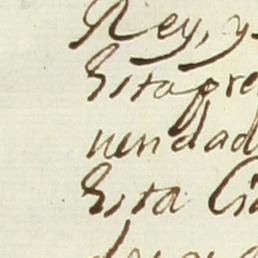 Rey, y
Esta pre
uendad
Esta Ci